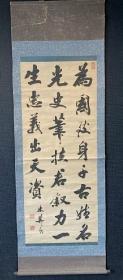 為國身千古姓名
光史筆扶君效力一
生忠義出天資